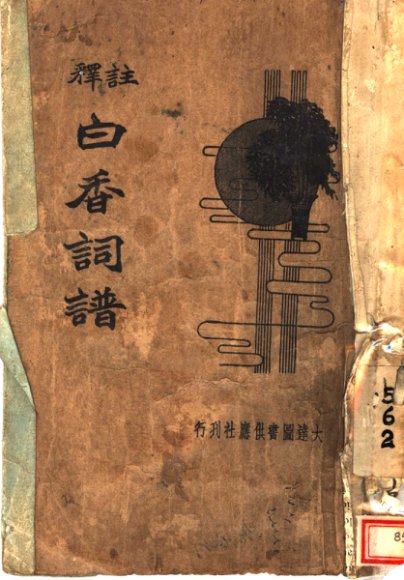 註釋
白香詞譜
大達圖書供應社刊行
562